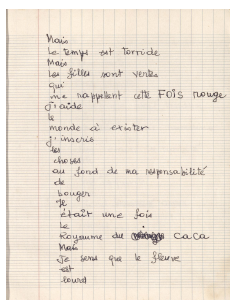 Mais
Le temps est torride
Mais
Les filles sont vertes
qui
me rappellent cette FOIS rouge
j'aide
le
monde à exister
j'inscris
les
choses
au fond de ma responsabilité
de
bouger
Je
était une fois
Le
Royaume du caca
Mais
Je sens que le fleuve
est
lourd